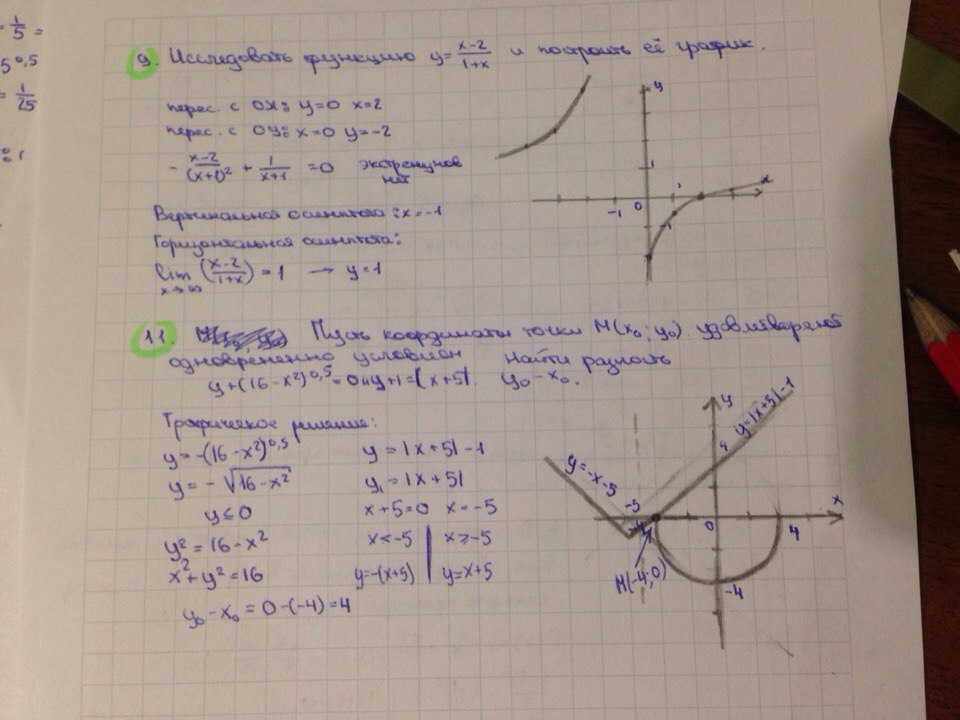 1/5 =
5^0,5
= 1/25
9. Исследовать функцию y = (x-2)/(1+x) и построить её график.
перес. с OX: y=0 x=2
перес. с OY: x=0 y=-2
-(x-2)/(x+1)² + 1/(x+1) = 0 экстремумов нет
Вертикальная асимптота: x=-1
Горизонтальная асимптота:
lim x→∞ ((x-2)/(1+x)) = 1 → y=1
y
1
x
-1 0 1
-1
11. Пусть координаты точки M(x₀; y₀) удовлетворяют
одновременно условиям Найти разность
y+(16-x²)^0,5=0 и y+1=|x+5|. y₀-x₀.
Графическое решение:
y=-(16-x²)^0,5 y=|x+5|-1
y=-√(16-x²) y₁=|x+5|
y≤0 x+5=0 x=-5
y²=16-x² x<-5 | x≥-5
x²+y²=16 y=-(x+5) | y=x+5
y₀-x₀=0-(-4)=4
y
y=|x+5|-1
4
y=-x-5
-5
x
-4 0 4
M(-4;0)
-4